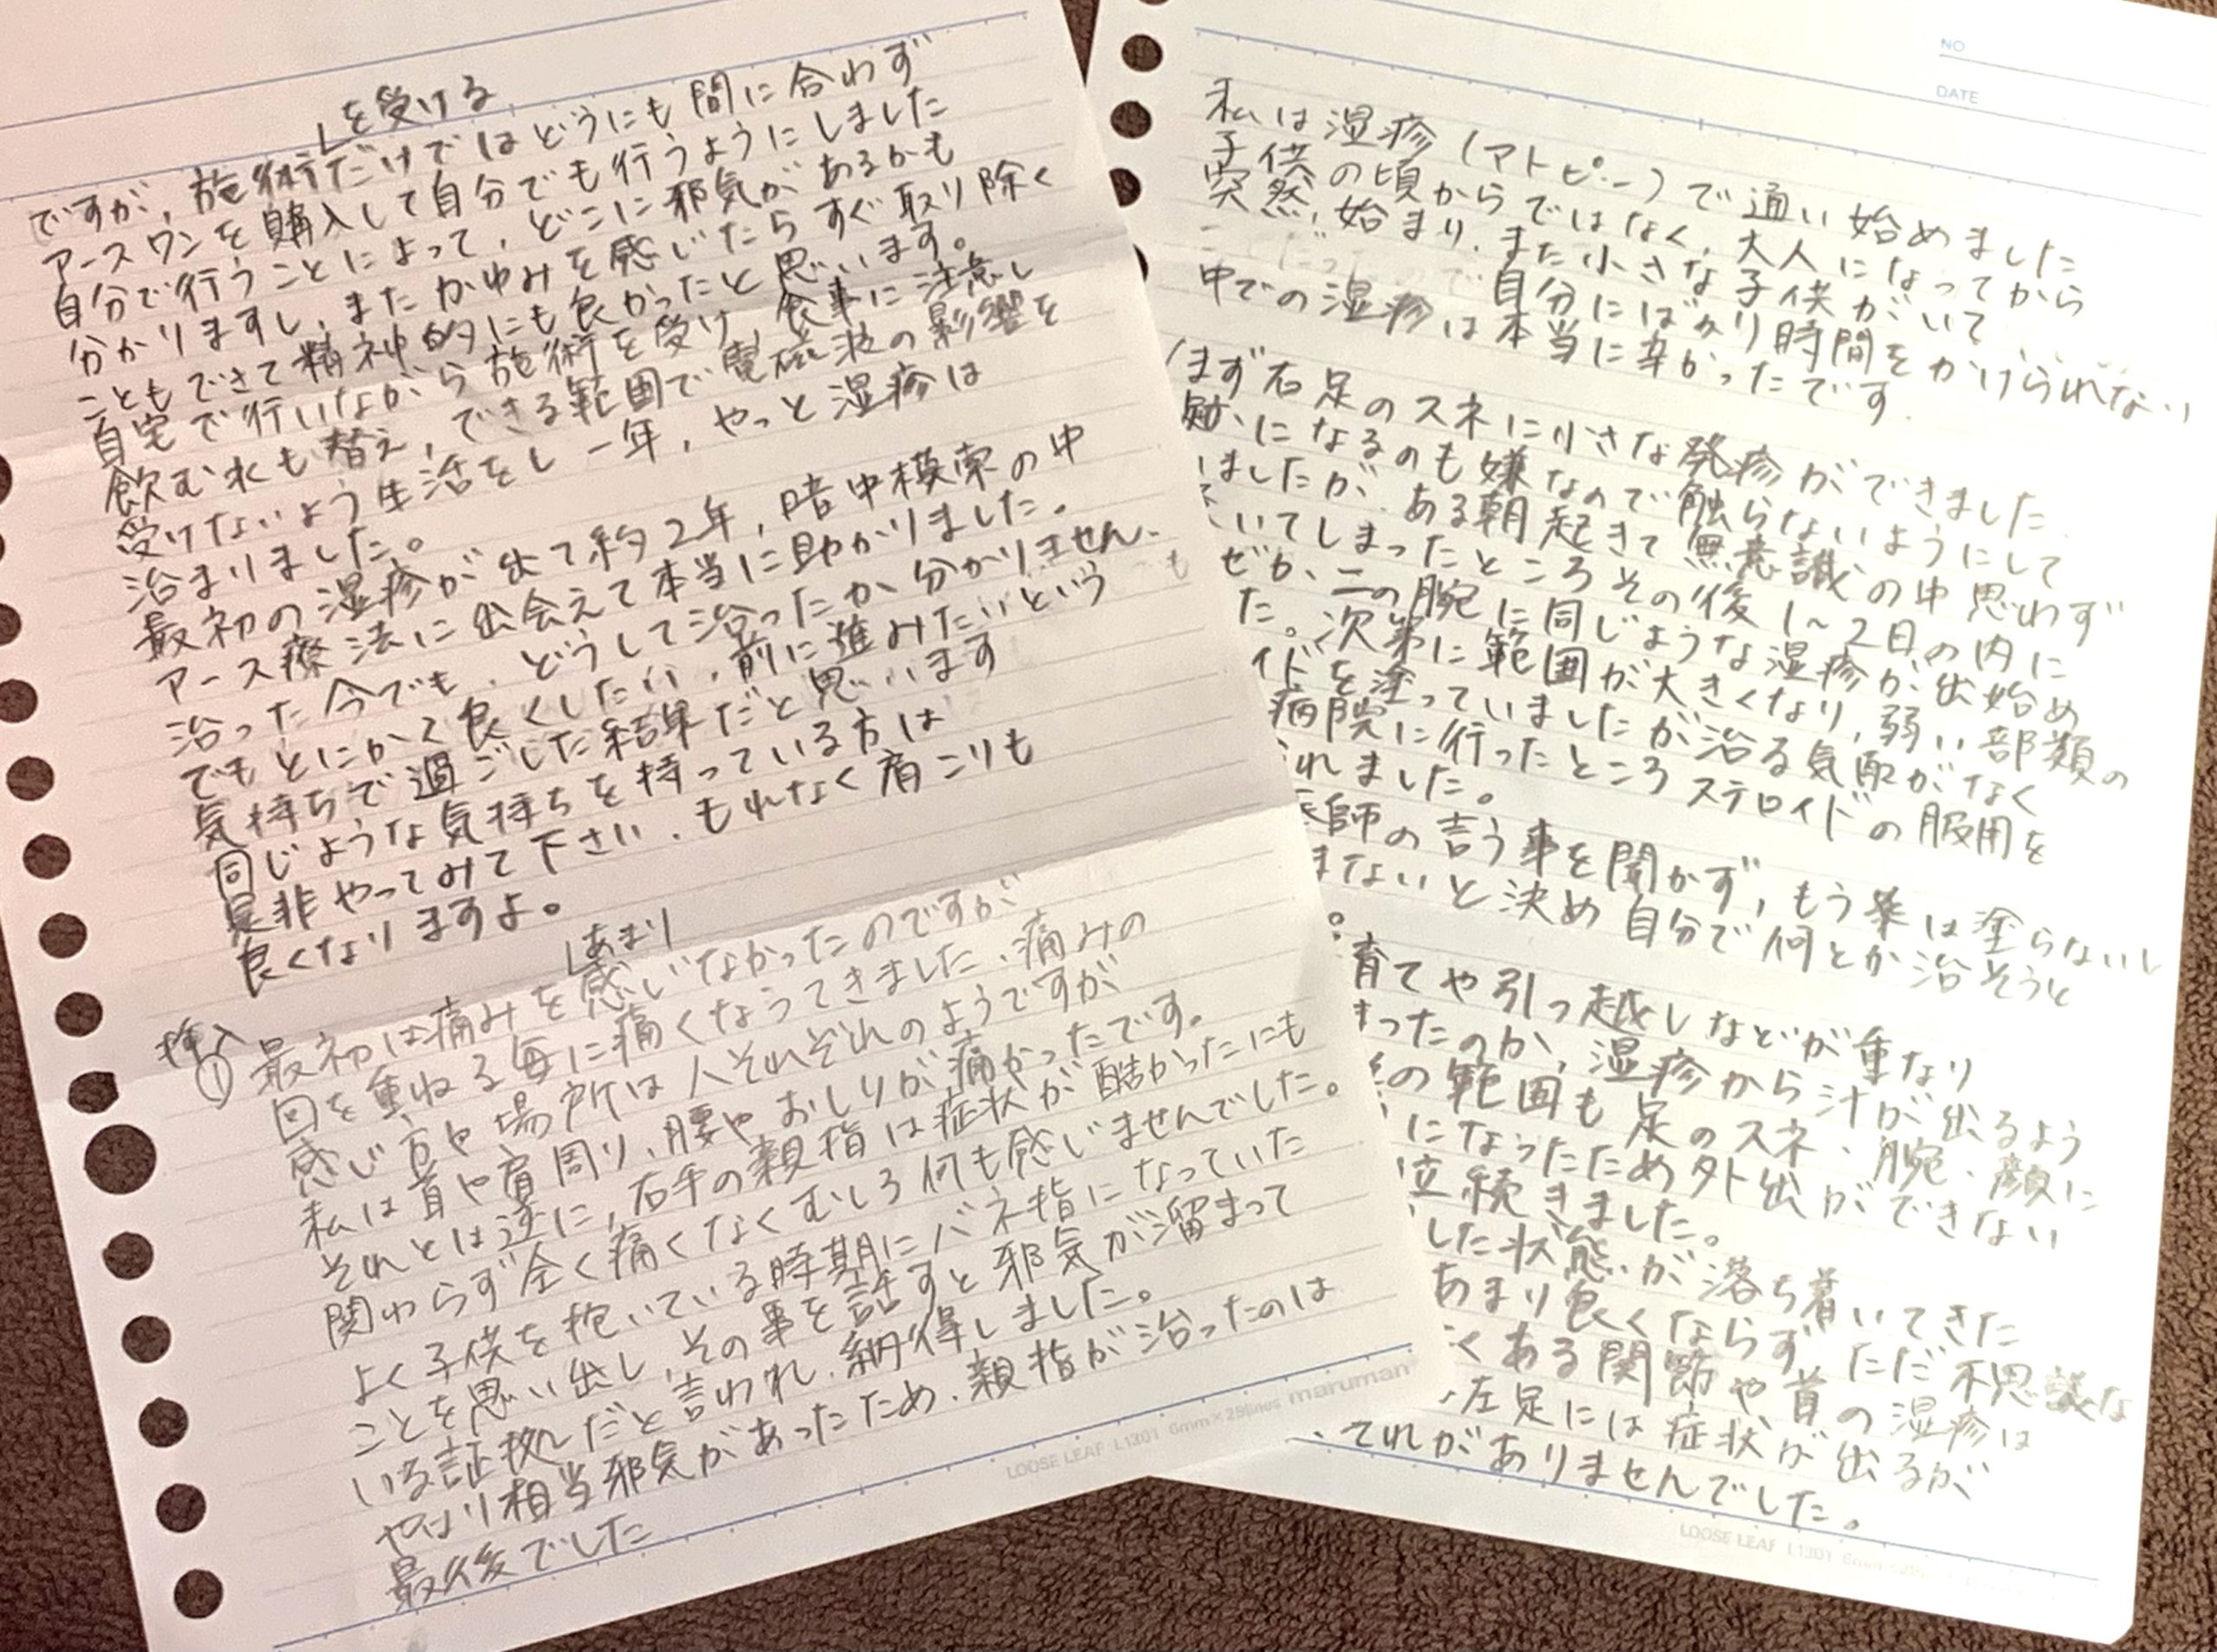 NO
DATE
私は湿疹(アトピー)で通い始めました
子供の頃からではなく、大人になってから
突然始まり、また小さな子供がいて
自分にばかり時間をかけられない
中での湿疹は本当に辛かったです.
まず右足のスネに小さな発疹ができました.
になるのも嫌なので触らないようにして
いましたが、ある朝起きて無意識の中思わず
いてしまったところその後1~2日の内に
ぜか、二の腕に同じような湿疹が出始め
た。次第に範囲が大きくなり、弱い部類の
イドを塗っていましたが治る気配がなく
病院に行ったところステロイドの服用を
れました。
医師の言う事を聞かず,もう薬は塗らないし
まないと決め自分で何とか治そうと
育てや引っ越しなどが重なり
まったのか,湿疹から汁が出るよう
の範囲も足のスネ、腕、顔に
になったため外出ができない
続きました。
した状態が落ち着いてきた
あまり良くならず ただ不思議な
くある関節や首の湿疹は
左足には症状が出るが
てれがありませんでした。
LOOSE LEAF L1301 6mm×29lines
を受ける
ですが,施術だけではどうにも間に合わず
アースワンを購入して自分でも行うようにしました
自分で行うことによって,どこに邪気があるかも
分かりますし,またかゆみを感じたらすぐ取り除く
こともできて精神的にも良かったと思います。
自宅で行いながら施術を受け,食事に注意し
飲む水も替え,できる範囲で電磁波の影響を
受けないよう生活をし一年,やっと湿疹は
治まりました。
最初の湿疹が出て約2年,暗中模索の中
アース療法に出会えて本当に助かりました。
治った今でも,どうして治ったか分かりません.
でもとにかく良くしたい,前に進みたいという
気持ちで過ごした結果だと思います
同じような気持ちを持っている方は
是非やってみて下さい.もれなく肩こりも
良くなりますよ。
あまり
挿入
① 最初は痛みを感じなかったのですが
回を重ねる毎に痛くなってきました、痛みの
感じ方や場所は人それぞれのようですが
私は首や肩周り、腰やおしりが痛かったです。
それとは逆に,右手の親指は症状が酷かったにも
関わらず全く痛くなくむしろ何も感じませんでした。
よく子供を抱いている時期にバネ指になっていた
ことを思い出し,その事を話すと邪気が溜まって
いる証拠だと言われ,納得しました。
やはり相当邪気があったため,親指が治ったのは
最後でした
LOOSE LEAF L1301 6mm×29lines maruman